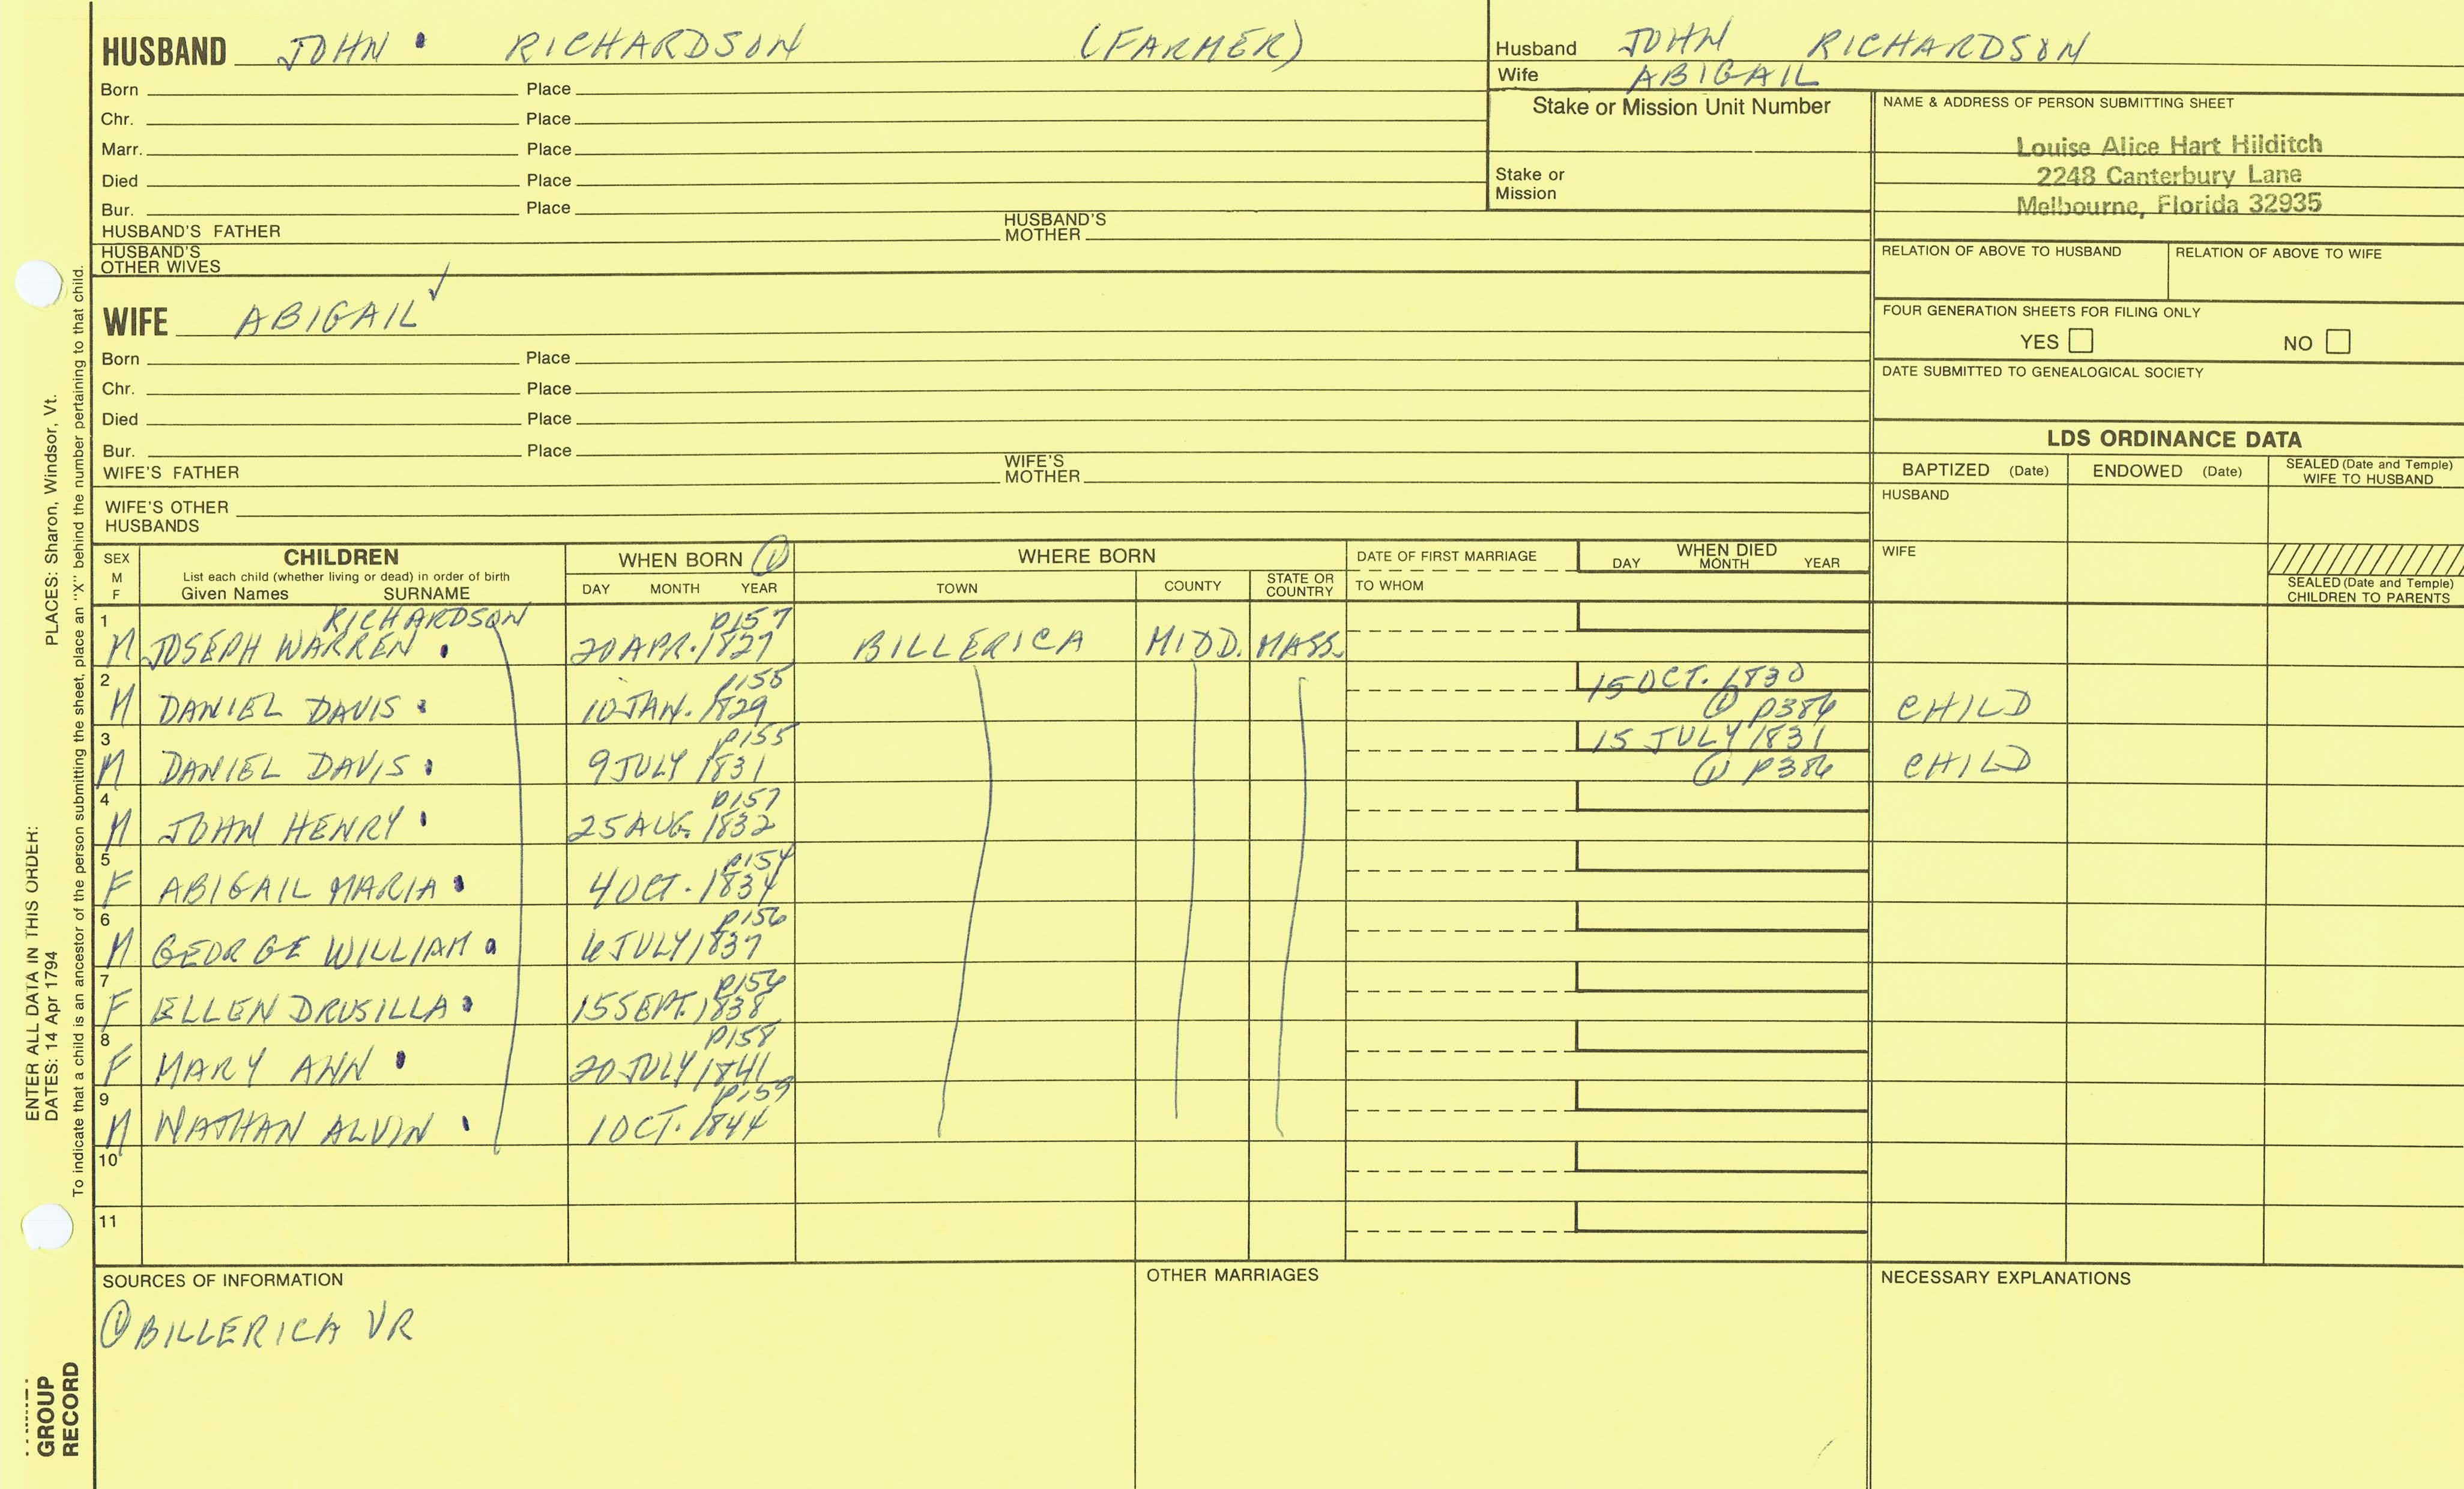 HUSBAND JOHN RICHARDSON (FARMER)
Born Place
Chr. Place
Marr. Place
Died Place
Bur. Place
HUSBAND'S FATHER HUSBAND'S MOTHER
HUSBAND'S OTHER WIVES
WIFE ABIGAIL ✓
Born Place
Chr. Place
Died Place
Bur. Place
WIFE'S FATHER WIFE'S MOTHER
WIFE'S OTHER HUSBANDS
Husband JOHN RICHARDSON
Wife ABIGAIL
Stake or Mission Unit Number
Stake or Mission
NAME & ADDRESS OF PERSON SUBMITTING SHEET
Louise Alice Hart Hilditch
2248 Canterbury Lane
Melbourne, Florida 32935
RELATION OF ABOVE TO HUSBAND RELATION OF ABOVE TO WIFE
FOUR GENERATION SHEETS FOR FILING ONLY
YES NO
DATE SUBMITTED TO GENEALOGICAL SOCIETY
LDS ORDINANCE DATA
BAPTIZED (Date) ENDOWED (Date) SEALED (Date and Temple) WIFE TO HUSBAND
HUSBAND
WIFE
SEALED (Date and Temple) CHILDREN TO PARENTS
SEX M F
CHILDREN
List each child (whether living or dead) in order of birth
Given Names SURNAME
WHEN BORN ①
DAY MONTH YEAR
WHERE BORN
TOWN COUNTY STATE OR COUNTRY
DATE OF FIRST MARRIAGE
TO WHOM
WHEN DIED
DAY MONTH YEAR
1 RICHARDSON p157
M JOSEPH WARREN 20 APR. 1827 BILLERICA MIDD. MASS.
2 p155 15 OCT. 1830
M DANIEL DAVIS 10 JAN. 1829 ① p386 CHILD
3 p155 15 JULY 1831
M DANIEL DAVIS 9 JULY 1831 ① p386 CHILD
4 p157
M JOHN HENRY 25 AUG. 1832
5 p154
F ABIGAIL MARIA 4 OCT. 1834
6 p156
M GEORGE WILLIAM 6 JULY 1837
7 p156
F ELLEN DRUSILLA 15 SEPT. 1838
8 p158
F MARY ANN 20 JULY 1841
9 p159
M NATHAN ALVIN 1 OCT. 1844
10
11
SOURCES OF INFORMATION
① BILLERICA VR
OTHER MARRIAGES
NECESSARY EXPLANATIONS
ENTER ALL DATA IN THIS ORDER:
DATES: 14 Apr 1794 PLACES: Sharon, Windsor, Vt.
To indicate that a child is an ancestor of the person submitting the sheet, place an "X" behind the number pertaining to that child.
GROUP
RECORD